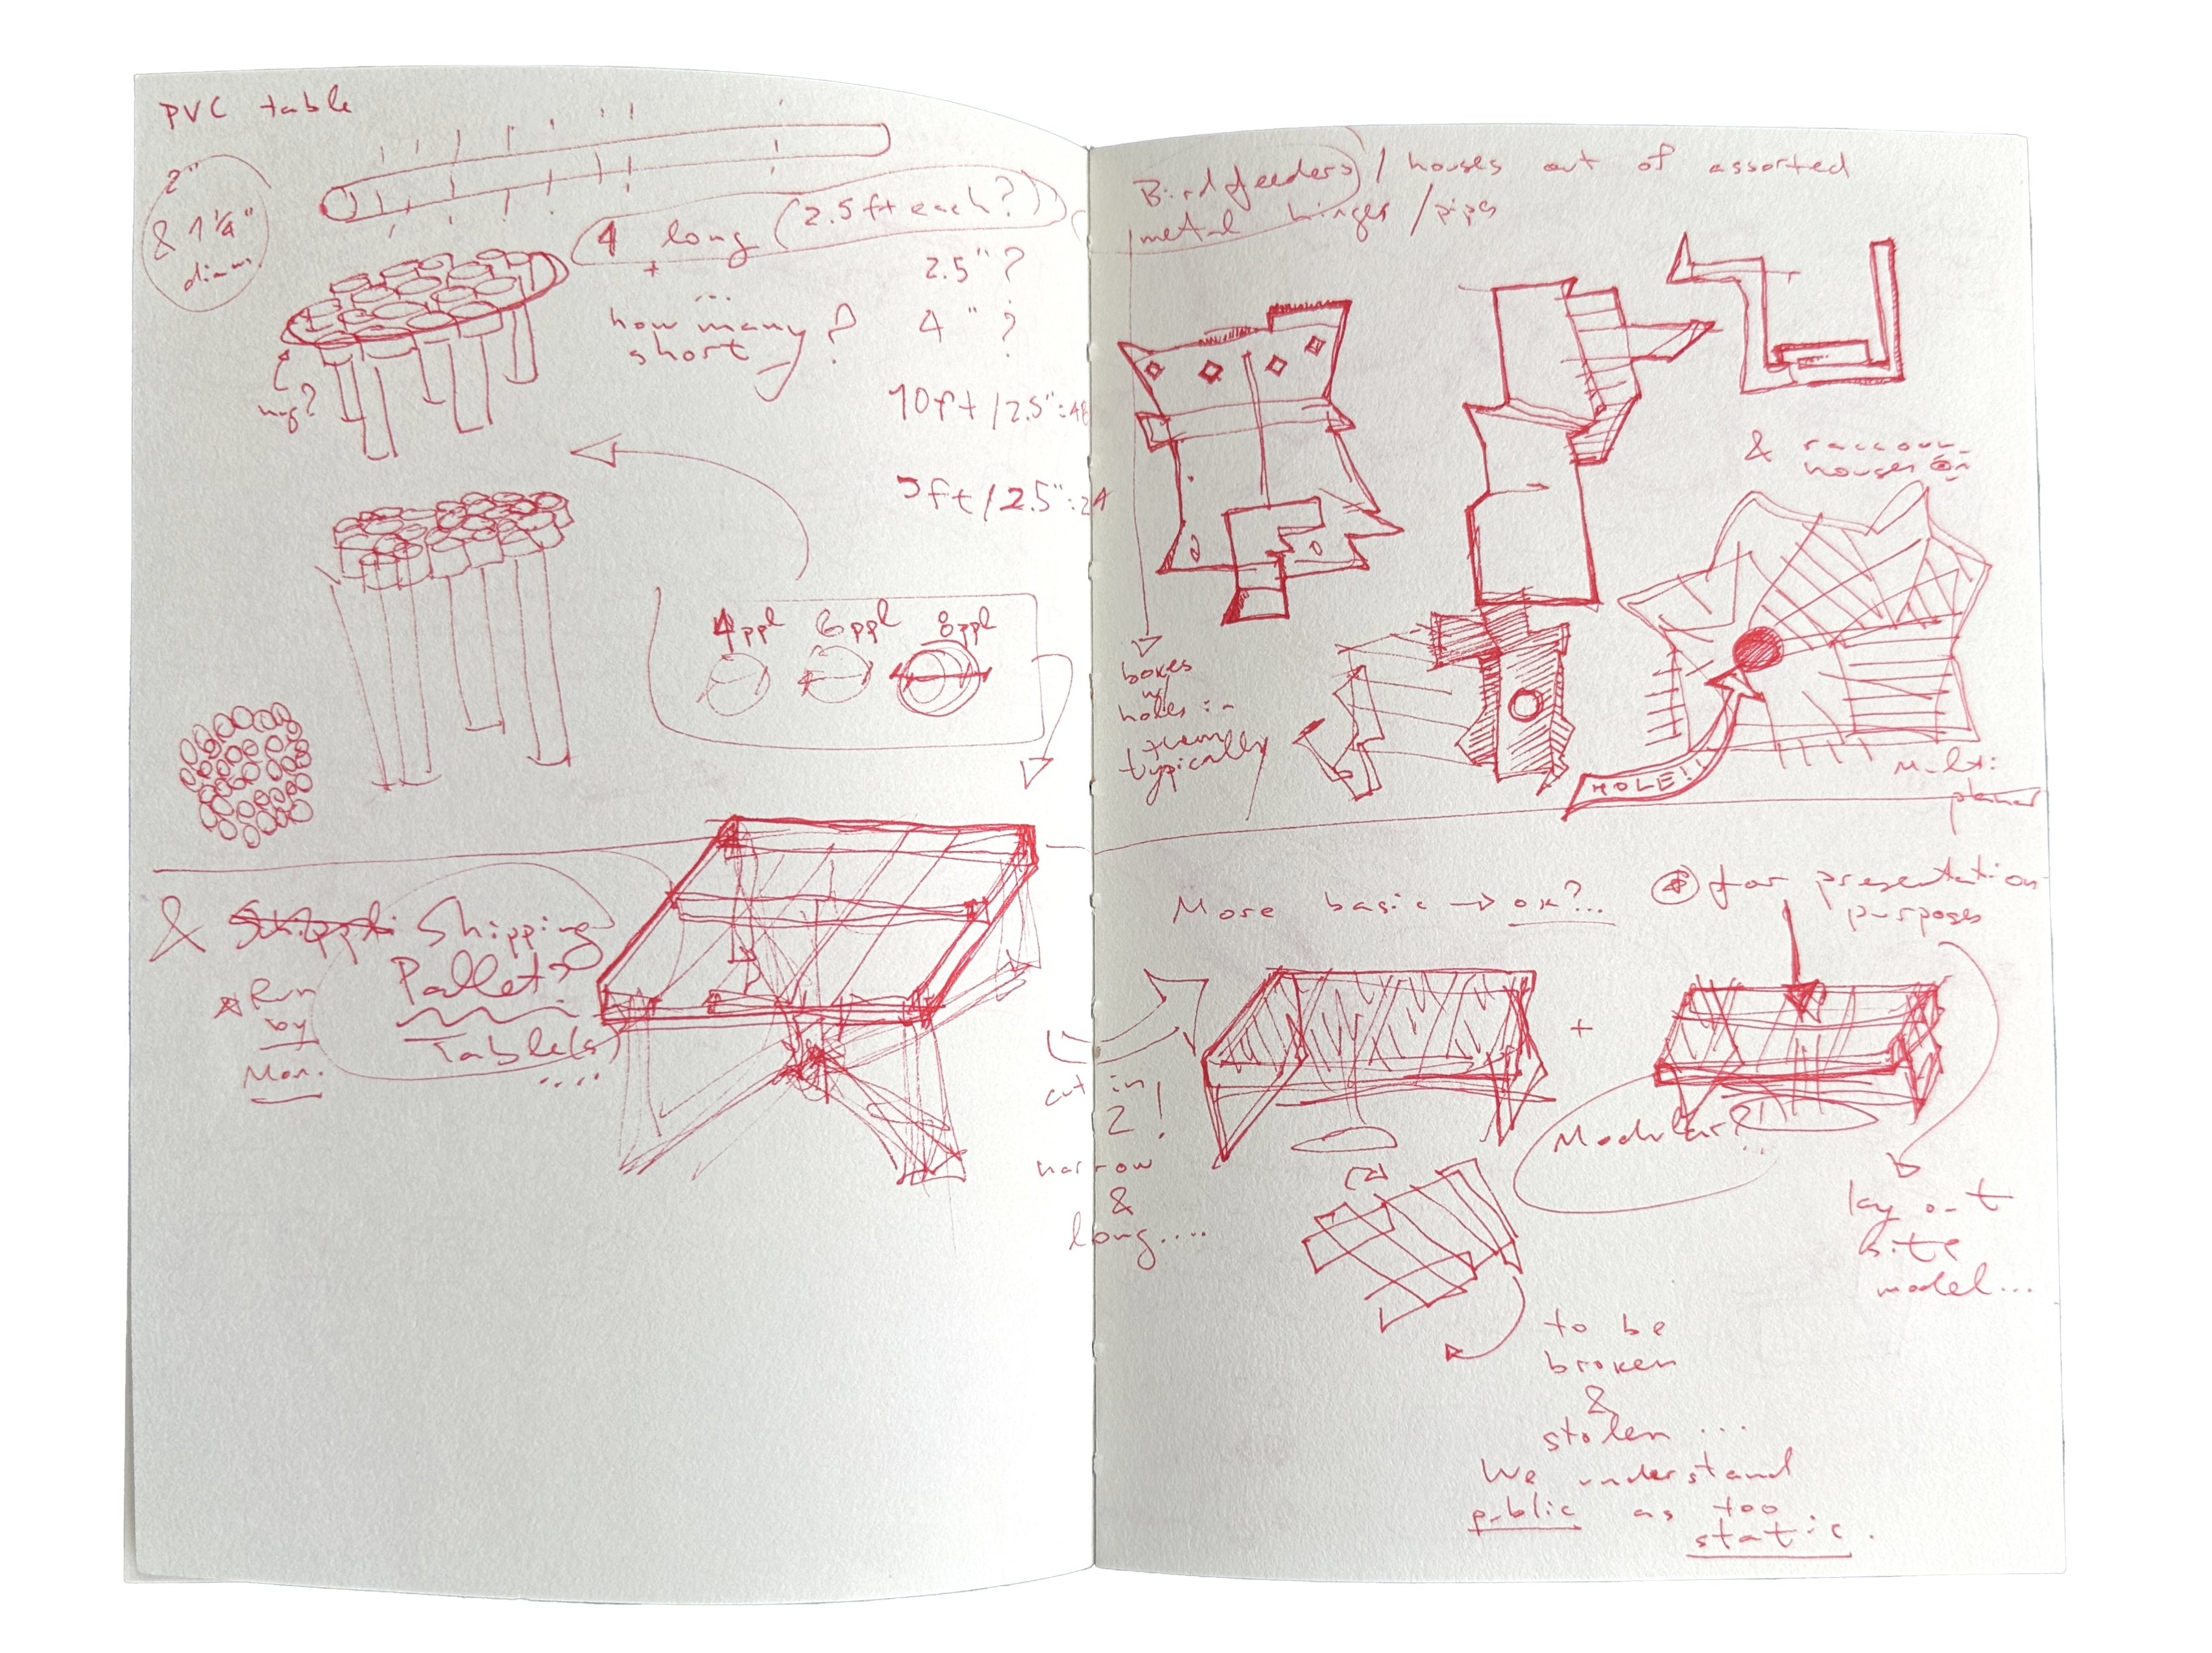 PVC table
2"
& 1 1/4"
diam.
4 long (2.5ft each?)
+
...
how many
short ?
2.5" ?
4 " ?
10ft/2.5":48
5ft/2.5":24
4ppl 6ppl 8ppl
& Shipping
Pallets
Table(s)
....
Run
by
Mon.
Birdfeeders / houses out of assorted
metal hinges /pipes
& raccoon
houses
boxes
w/
holes in
them
typically
HOLE!!
Multi
planar
More basic → ok?...
for presentation
purposes
cut in
2!
narrow
&
long....
+
Modular?!
...
lay out
site
model...
to be
broken
&
stolen ...
We understand
public as too
static.